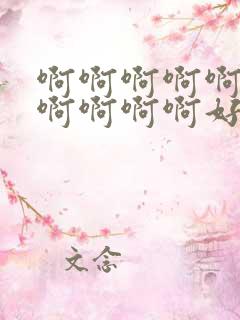 啊啊啊啊啊
啊啊啊啊好
文念